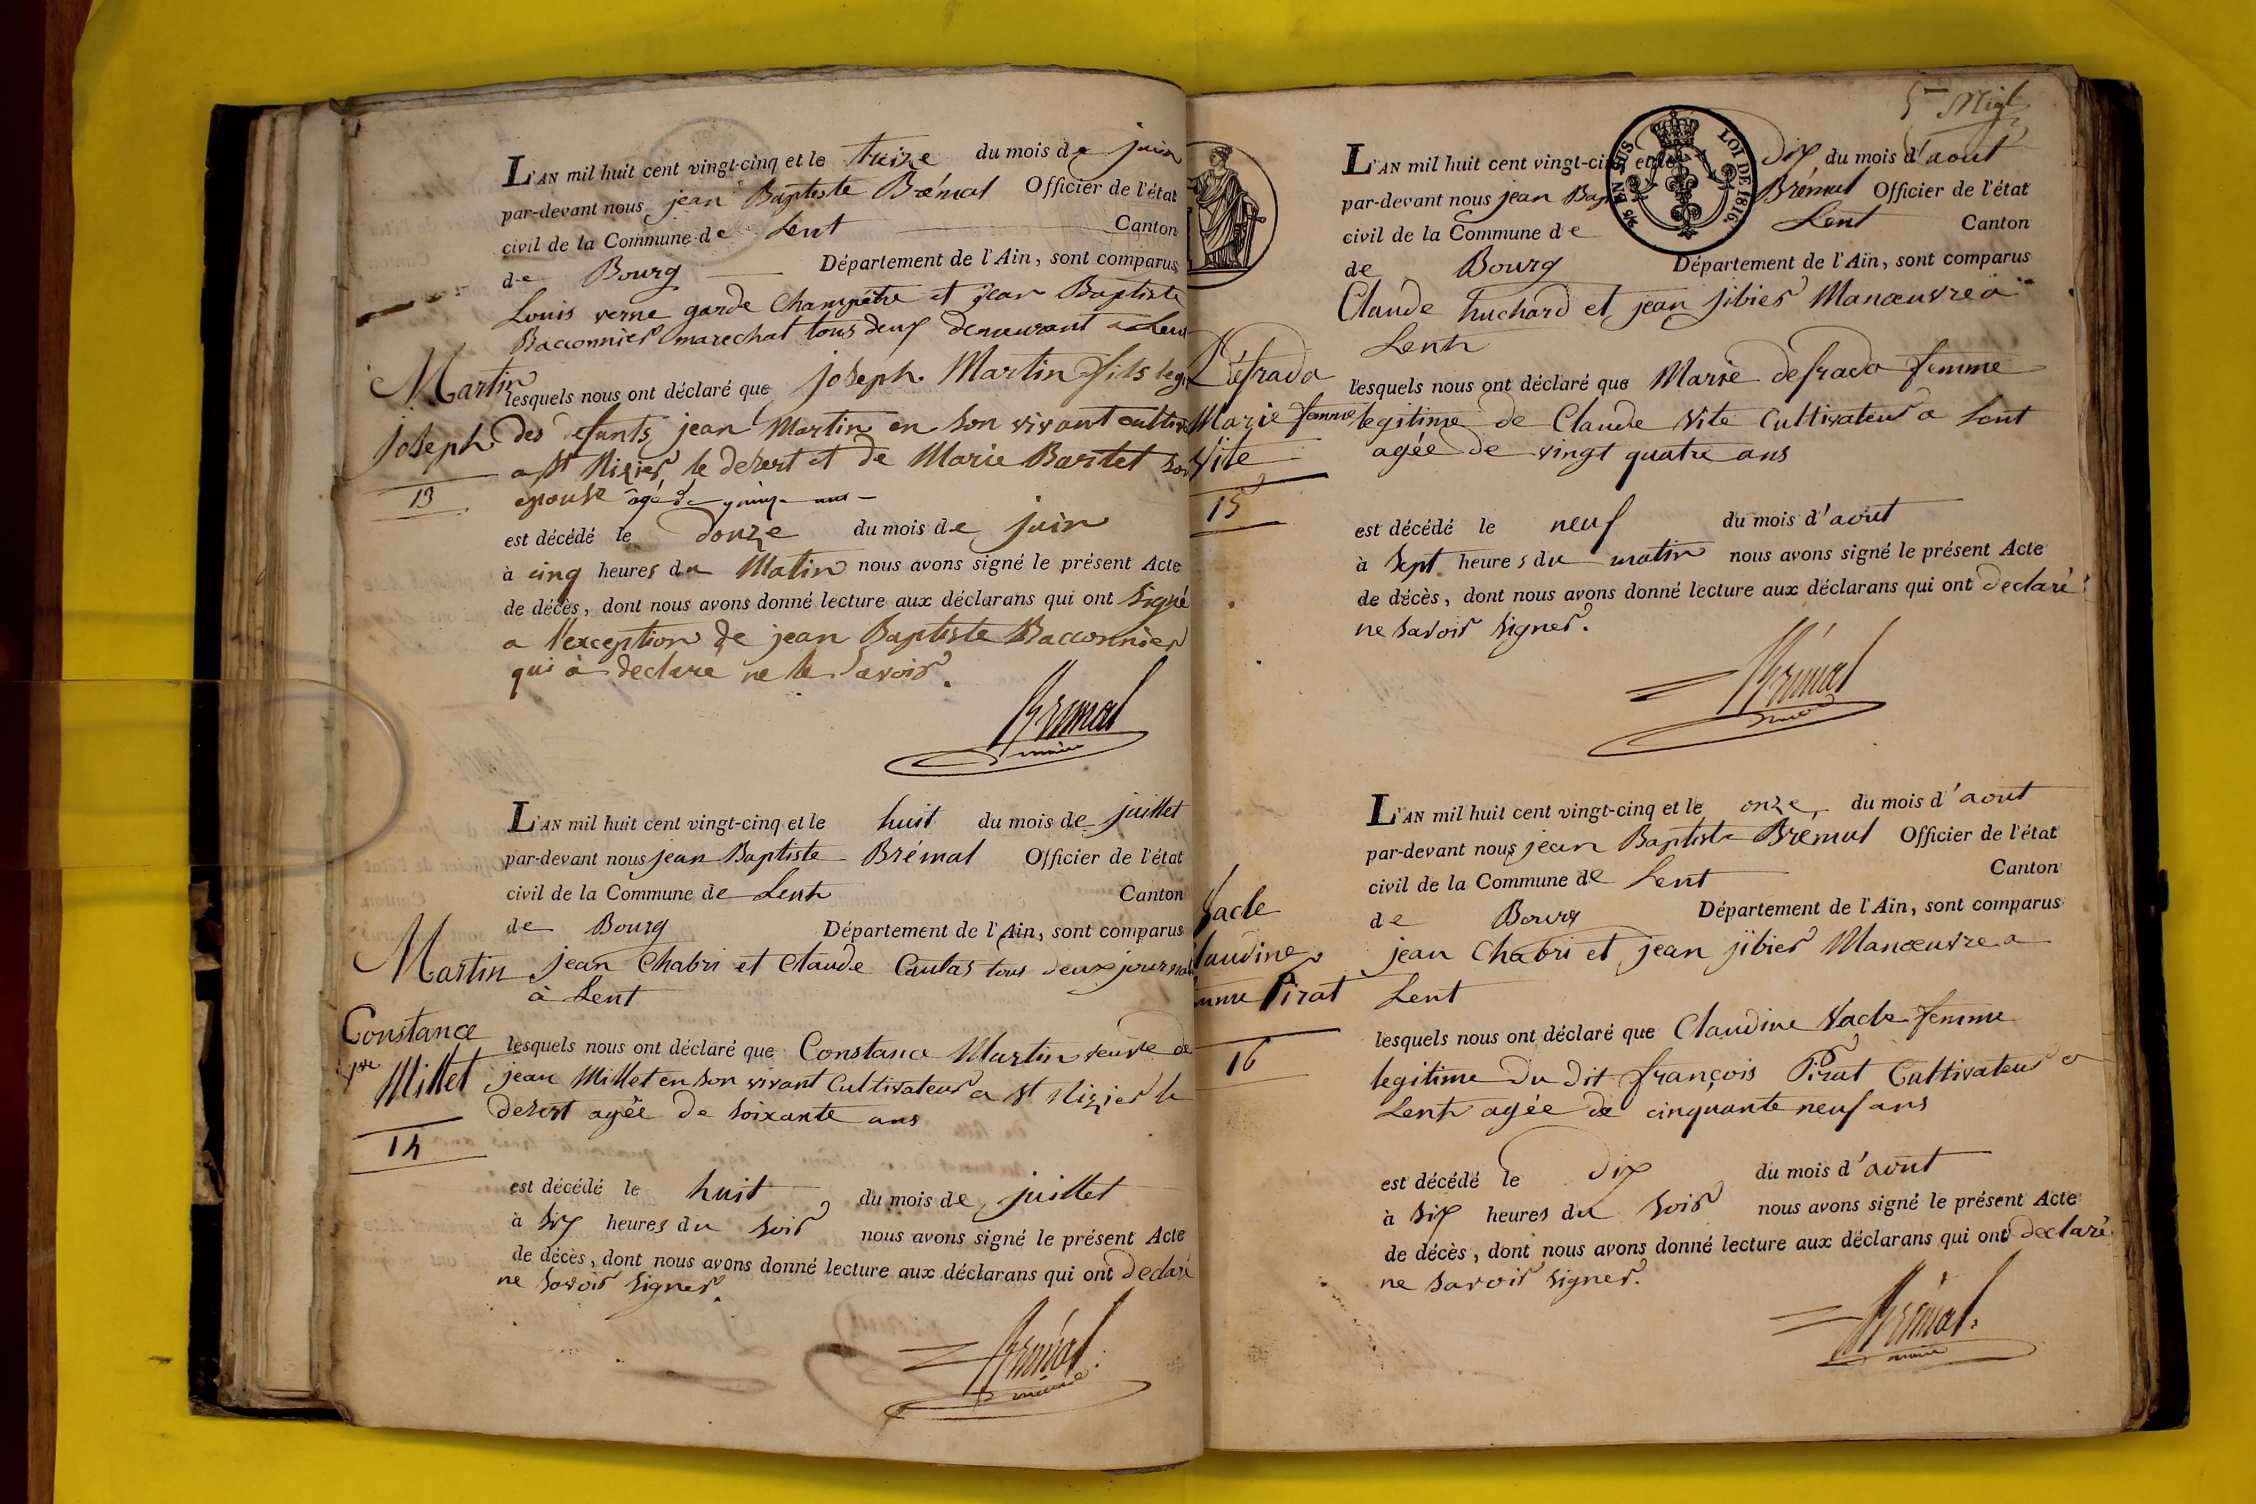 L'AN mil huit cent vingt-cinq et le treize du mois de juin
par-devant nous jean Baptiste Brémal Officier de l'état
civil de la Commune de Lent Canton
de Bourg Département de l'Ain, sont comparus
Louis verne garde Champêtre et jean Baptiste
Bacconnier marechal tous deux demeurant a Lent
Martin
Joseph
13
lesquels nous ont déclaré que joseph Martin fils legi
des defunts jean Martin en son vivant cultiv
a St Nizier le desert et de Marie Bartet son
epouse agé de quinze ans
est décédé le douze du mois de juin
à cinq heures du Matin nous avons signé le présent Acte
de décès, dont nous avons donné lecture aux déclarans qui ont signé
a l'exception de jean Baptiste Bacconnier
qui à declare ne le savoir.
Brémal
maire
L'AN mil huit cent vingt-cinq et le huit du mois de juillet
par-devant nous jean Baptiste Brémal Officier de l'état
civil de la Commune de Lent Canton
de Bourg Département de l'Ain, sont comparus
jean Chabri et Claude Caulas tous deux journal
à Lent
Martin
Constance
Millet
14
lesquels nous ont déclaré que Constance Martin veuve de
jean Millet en son vivant Cultivateur a St Nizier le
desert agée de soixante ans
est décédé le huit du mois de juillet
à six heures du soir nous avons signé le présent Acte
de décès, dont nous avons donné lecture aux déclarans qui ont declaré
ne savoir signer.
Brémal
maire
LOI DE 1816.
EN SUS
L'AN mil huit cent vingt-cinq et le dix du mois d'aout
par-devant nous jean Bap Brémal Officier de l'état
civil de la Commune de Lent Canton
de Bourg Département de l'Ain, sont comparus
Claude huchard et jean jibier Manœuvre a
Lent
Défrada
Marie femme
Vite
15
lesquels nous ont déclaré que Marie defrada femme
legitime de Claude Vite Cultivateur a Lent
agée de vingt quatre ans
est décédé le neuf du mois d'aout
à sept heures du matin nous avons signé le présent Acte
de décès, dont nous avons donné lecture aux déclarans qui ont declaré
ne savoir signer.
Brémal
maire
L'AN mil huit cent vingt-cinq et le onze du mois d'aout
par-devant nous jean Baptiste Brémal Officier de l'état
civil de la Commune de Lent Canton
de Bourg Département de l'Ain, sont comparus
jean Chabri et jean jibier Manœuvre a
Lent
Vacle
laudine
mme Pirat
16
lesquels nous ont déclaré que Claudine Vacle femme
legitime du dit françois Pirat Cultivateur a
Lent agée de cinquante neuf ans
est décédé le dix du mois d'aout
à six heures du soir nous avons signé le présent Acte
de décès, dont nous avons donné lecture aux déclarans qui ont declaré
ne savoir signer.
Brémal
maire